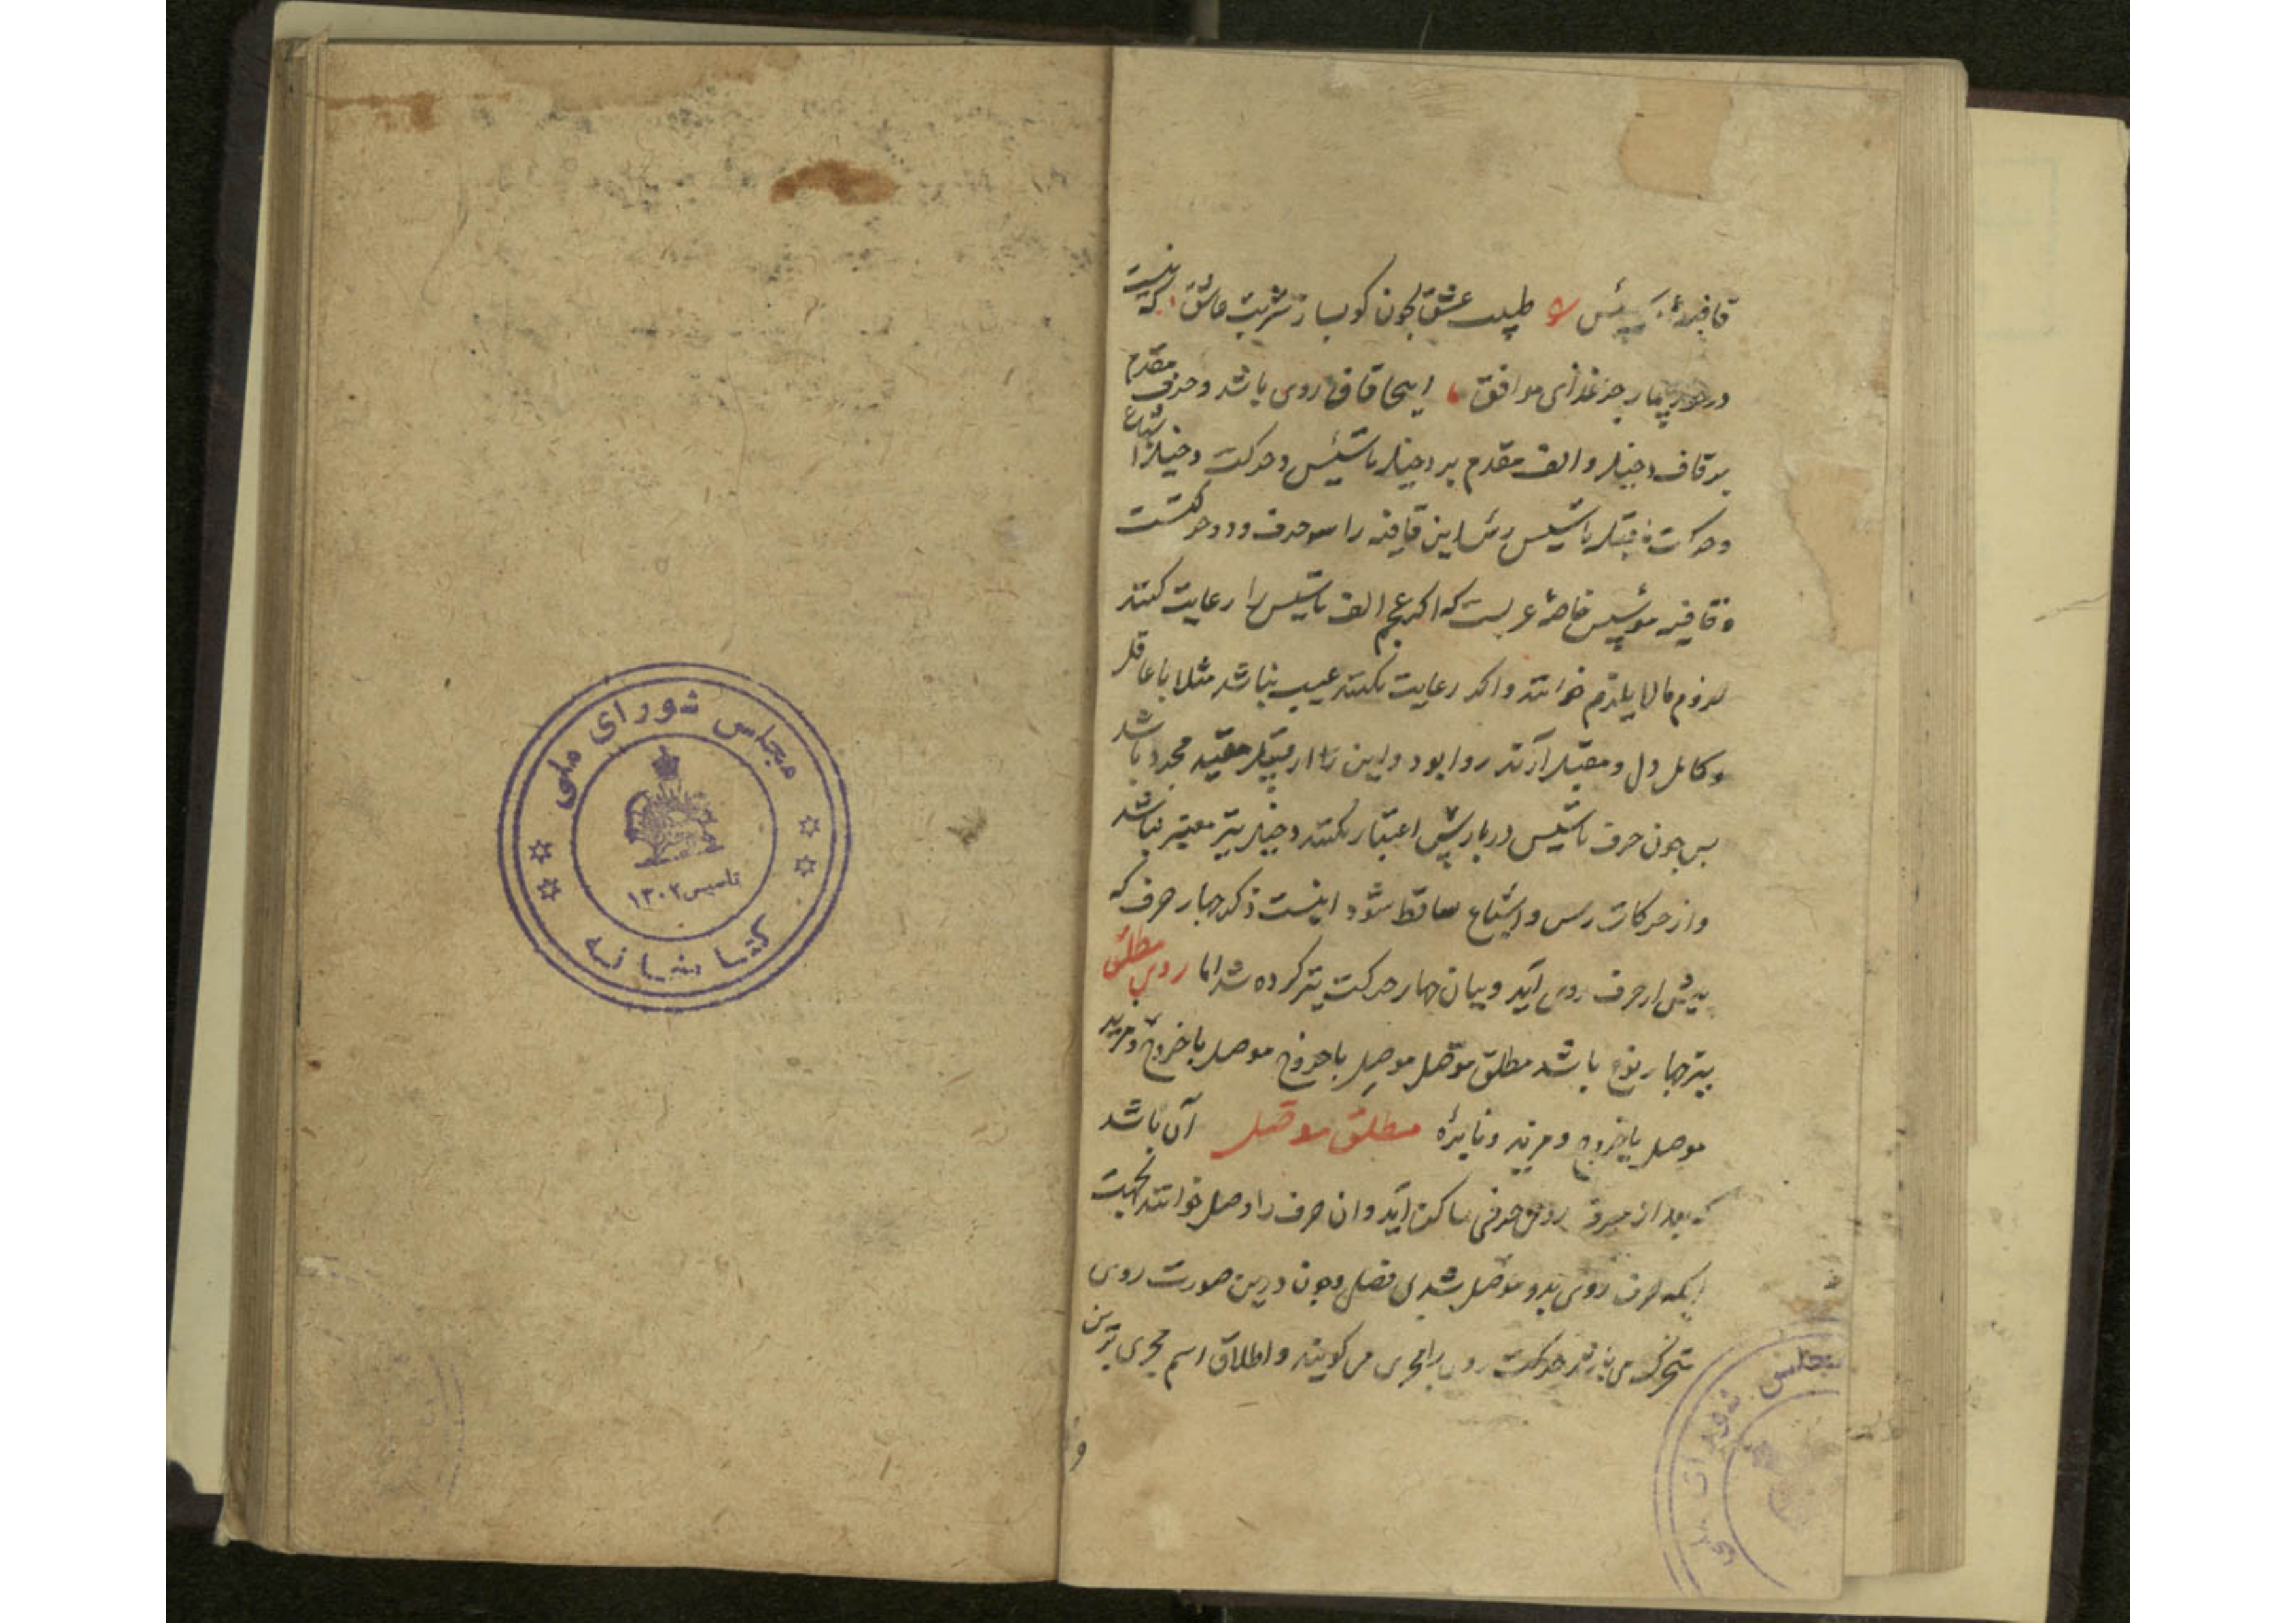 قافیهٔ تاسیس طبیب عشق چون کو بسازد شربت عاشق که نیست
در خورد بیمار جز غذای موافق اینجا قاف روی باشد و حرف مقدم
بر قاف دخیل و الف مقدم بر دخیل تاسیس و حرکت دخیل اشباع
و حرکت ماقبل تاسیس رس این قافیه را سه حرف و دو حرکتست
و قافیه موسس خاصهٔ عربست که اکر عجم الف تاسیس را رعایت کنند
لزوم مالایلزم خوانند و اکر رعایت نکنند عیب نباشد مثلا با عاقل
و کامل دل و مقبل آرند روا بود و این را از قبیل مقید مجرد باشد
بس چون حرف تاسیس در پارسی اعتبار نکنند دخیل نیز معتبر نباشد
و از حرکات رس و اشباع ساقط شود اینست ذکر چهار حرف که
پیش از حرف روی آید و بیان چهار حرکت نیز کرده شد اما روی مطلق
نیز چهار نوع باشد مطلق موصل موصل با خروج موصل با خروج و مزید
موصل با خروج و مزید و نایره مطلق موصل آن باشد
که بعد از حرف روی حرفی ساکن آید و ان حرف را وصل خوانند بجهت
انکه حرف روی بدو متصل شد بی فصل و چون درین صورت روی
متحرک می باشد حرکت روی را مجری می کویند و اطلاق اسم مجری برین
و
مجلس شورای ملی
تاسیس ۱۳۰۲
کتابخانه
مجلس شورای ملی